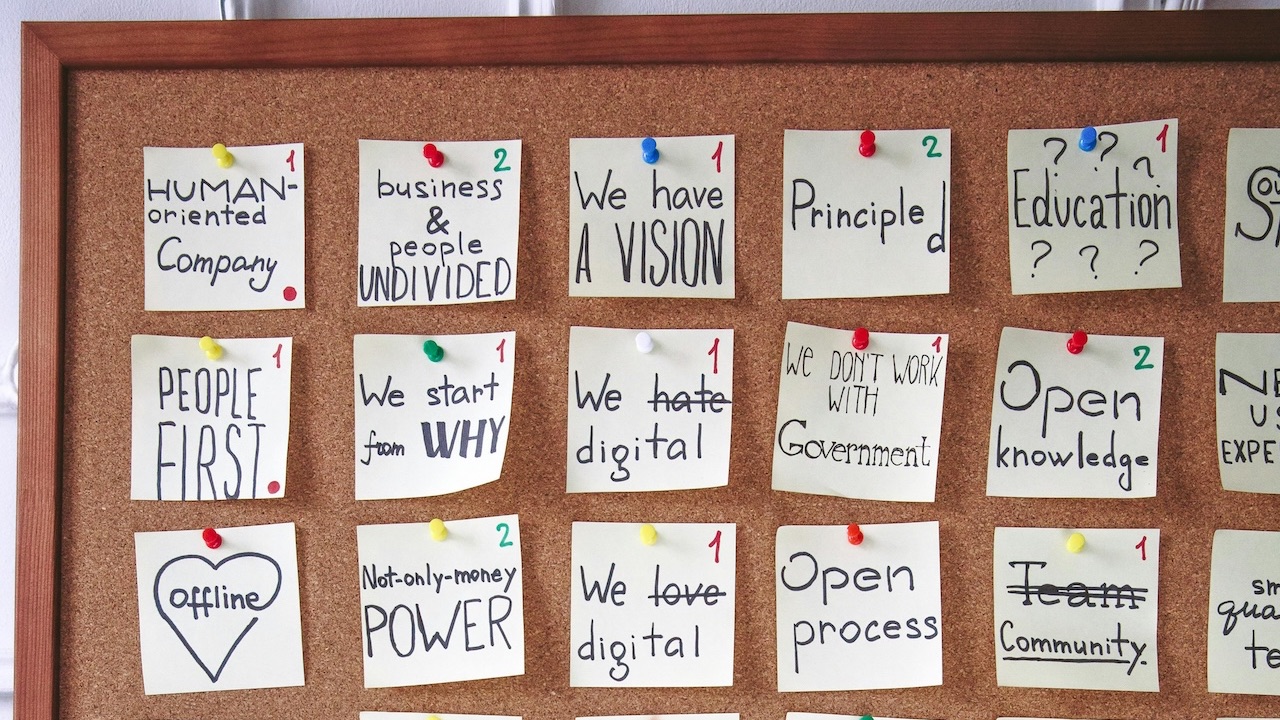 1
HUMAN-
oriented
Company
2
business
&
people
UNDIVIDED
1
We have
A VISION
2
Principled
1
? ? ?
Education
? ? ?
1
PEOPLE
FIRST
1
We start
from WHY
1
We hate
digital
1
We DON'T WORK
WITH
Government
2
Open
knowledge
offline
2
Not-only-money
POWER
1
We love
digital
Open
process
1
Team
Community.